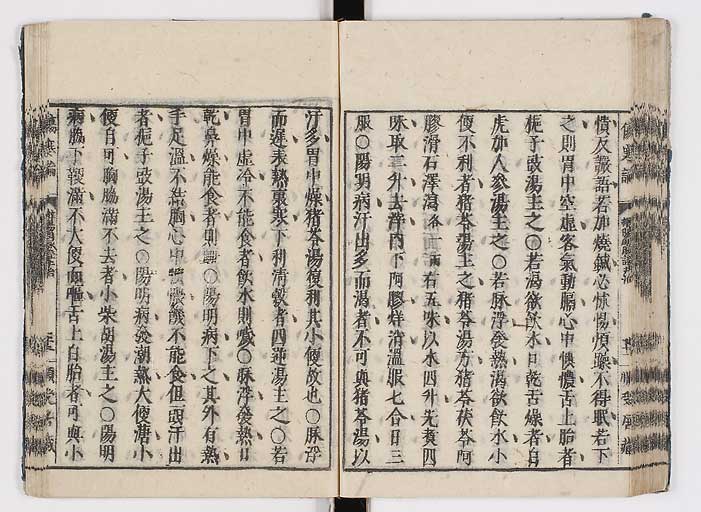 憒反讝語若加燒鍼必怵惕煩躁不得眠若下
之則胃中空虛客氣動膈心中懊憹舌上胎者
梔子豉湯主之〇若渴欲飲水口乾舌燥者白
虎加人參湯主之〇若脉浮發熱渴欲飲水小
便不利者猪苓湯主之猪苓湯方猪苓茯苓阿
膠滑石澤瀉各一兩右五味以水四升先煑四
味取二升去滓內下阿膠烊消溫服七合日三
服〇陽明病汗出多而渴者不可與猪苓湯以
汗多胃中燥猪苓湯復利其小便故也〇脉浮
而遲表熱裏寒下利清穀者四逆湯主之〇若
胃中虛冷不能食者飲水則噦〇脉浮發熱口
乾鼻燥能食者則衄〇陽明病下之其外有熱
手足溫不結胸心中懊憹饑不能食但頭汗出
者梔子豉湯主之〇陽明病發潮熱大便溏小
便自可胸脇滿不去者小柴胡湯主之〇陽明
病脇下鞕滿不大便而嘔舌上白胎者可與小
傷寒論